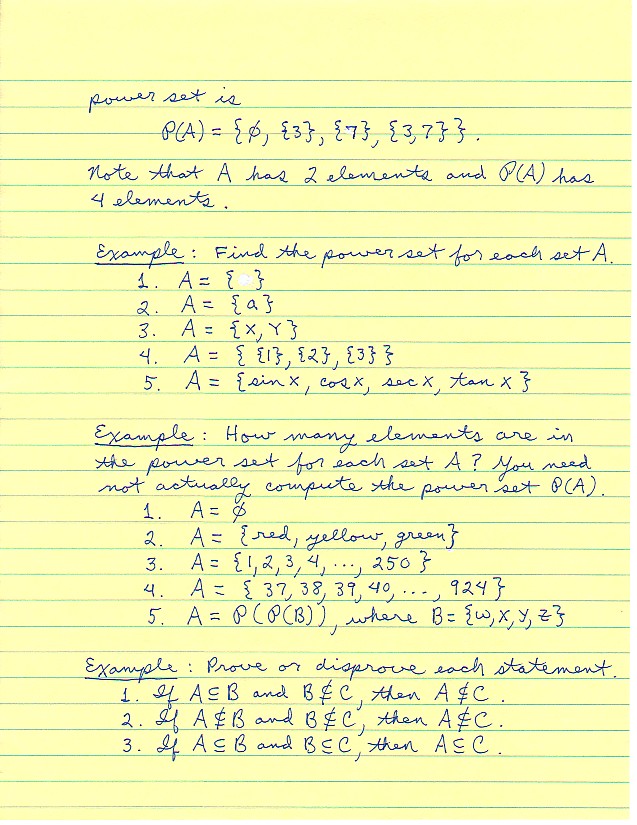 power set is
P(A) = {∅, {3}, {7}, {3,7}}.
Note that A has 2 elements and P(A) has
4 elements.
Example: Find the power set for each set A.
1. A = { }
2. A = {a}
3. A = {x, y}
4. A = { {1}, {2}, {3} }
5. A = {sin x, cos x, sec x, tan x}
Example: How many elements are in
the power set for each set A? You need
not actually compute the power set P(A).
1. A = ∅
2. A = {red, yellow, green}
3. A = {1, 2, 3, 4, ..., 250}
4. A = { 37, 38, 39, 40, ..., 924}
5. A = P(P(B)), where B = {w, x, y, z}
Example: Prove or disprove each statement.
1. If A ⊆ B and B ⊄ C, then A ⊄ C.
2. If A ⊄ B and B ⊄ C, then A ⊄ C.
3. If A ⊆ B and B ⊆ C, then A ⊆ C.